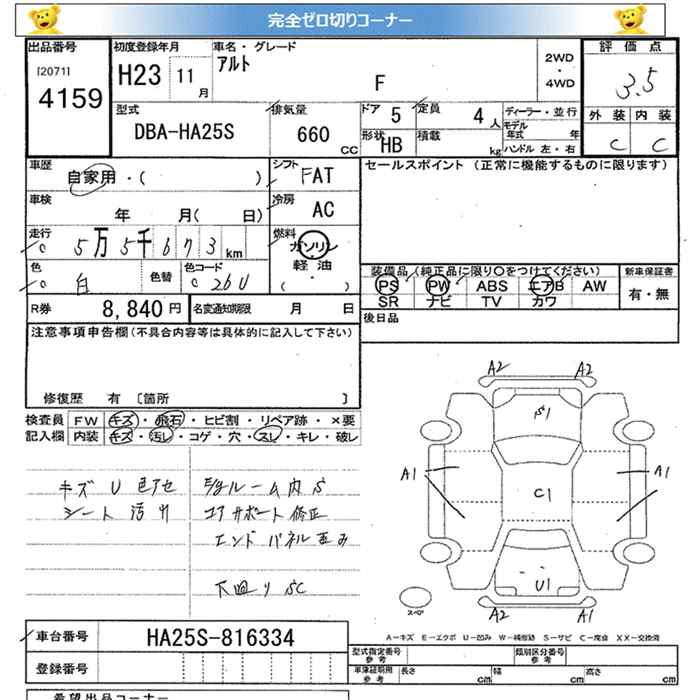 完全ゼロ切りコーナー
出品番号 初度登録年月 車名・グレード 評価点
[2071] H23 11月 アルト 2WD・4WD 3.5
4159 F 外装 内装
型式 排気量 ドア 5 定員 4人 ディーラー・並行 C C
DBA-HA25S 660 CC 形状 HB 積載 kg モデル年式 年
ハンドル 左・右
車歴 自家用・( ) シフト FAT セールスポイント (正常に機能するものに限ります)
車検 年 月( 日) 冷房 AC
走行 5万5千673km 燃料 ガソリン・軽油 ( )
色 白 色替 色コード 26U 装備品(純正品に限り〇をつけてください) 新車保証書
PS PW ABS エアB AW 有・無
SR ナビ TV カワ
R券 8,840円 名変通知期限 月 日 後日品
注意事項申告欄(不具合内容等は具体的に記入して下さい)
修復歴 有 [箇所 ]
検査員 FW キズ・飛石・ヒビ割・リペア跡・×要
記入欄 内装 キズ・汚レ・コゲ・穴・スレ・キレ・破レ
キズ U 色アセ E/gルーム内 S
シート 汚レ コアサポート修正
エンドパネル歪み
下廻り SC
A2 A2
A1 A1
C1
U1
A2 A1
スペア
A-キズ E-エクボ U-凹み W-補修跡 S-サビ C-腐食 XX-交換済
車台番号 HA25S-816334 型式指定番号 参考 類別区分番号 参考
登録番号 車検証記載 参考 長さ cm 幅 cm 高さ cm
希望出品コーナー